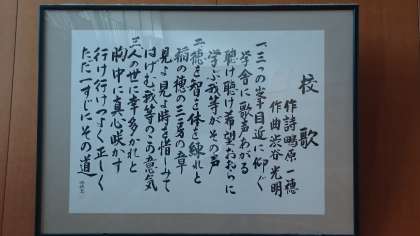 校歌
作詩 鴫原一穂
作曲 渋谷光明
一、三つの峯目近に仰ぐ
学舎に歌声あがる
聴け聴け希望おおらに
学ぶ我等がその声
二、徳を智を体を練れと
稲の穂の三方の章
見よ見よ時を惜しみて
はげむ我等のこの意気
三、人の世に幸多かれと
胸中に真心咲かす
行け行けつよく正しく
ただ一すじにその道